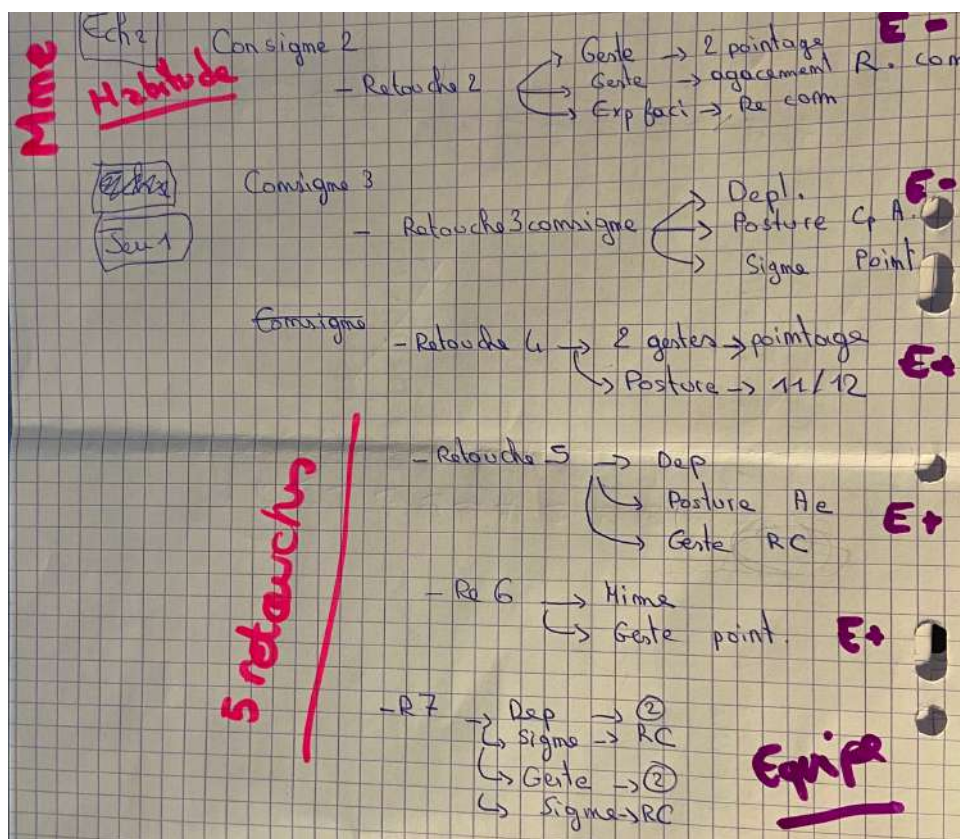 Mme
Ech 2 Consigne 2 E -
Habitude
- Retouche 2 → Geste → 2 pointage
→ Geste → agacement R. com
→ Exp faci → Re com
Consigne 3 E -
Jeu 1
- Retouche 3 consigne → Depl.
→ Posture Cp A.
→ Signe Point
Consigne
- Retouche 4 → 2 gestes → pointage E+
→ Posture → 11/12
5 retouches
- Retouche 5 → Dep
→ Posture Ae E+
→ Geste RC
- Re 6 → Mime
→ Geste point. E+
- R7 → Dep → ②
→ Signe → RC
→ Geste → ②
→ Signe → RC
Equipe